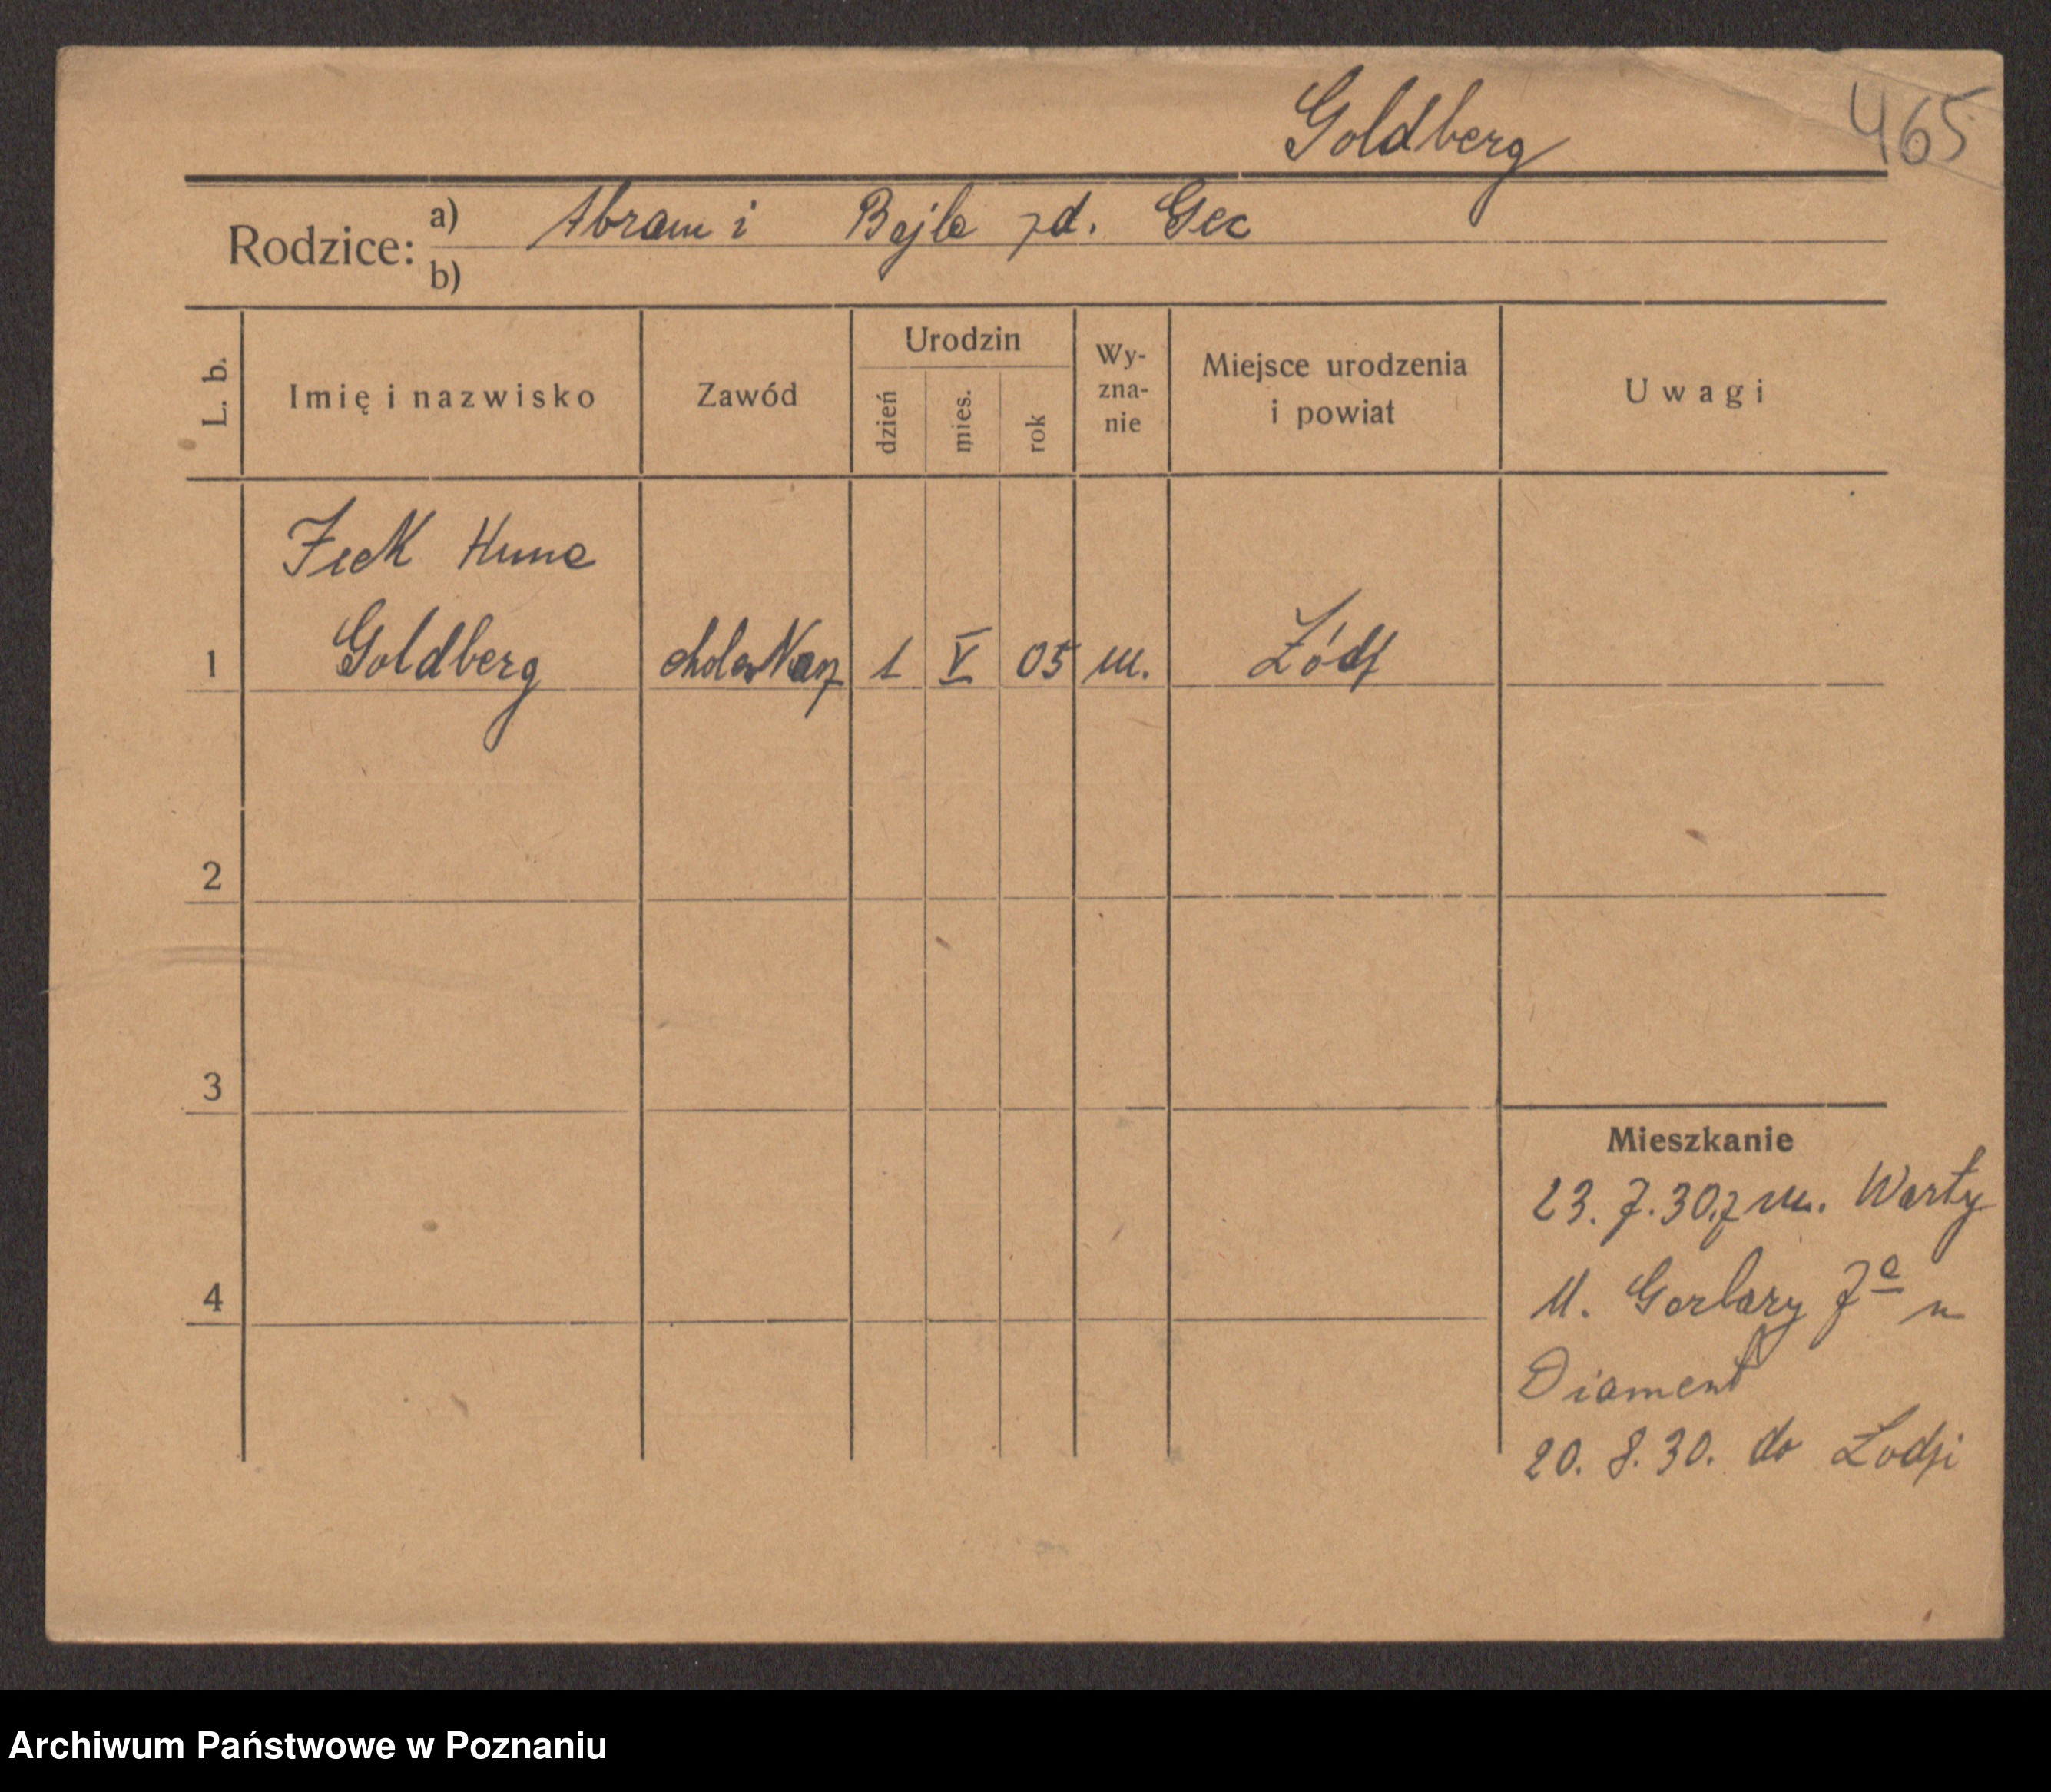 Goldberg 465
Rodzice: a) Abram i Bejla zd. Gec
b)
L. b. Imię i nazwisko Zawód Urodzin dzień mies. rok Wy-zna-nie Miejsce urodzenia i powiat Uwagi
Icek Huna
1 Goldberg cholewkarz 1 V 05 m. Łódź
2
3
Mieszkanie
23. 7. 30. z m. Warty
4 U. Garbary 7a u
Diament
20. 8. 30. do Łodzi
Archiwum Państwowe w Poznaniu